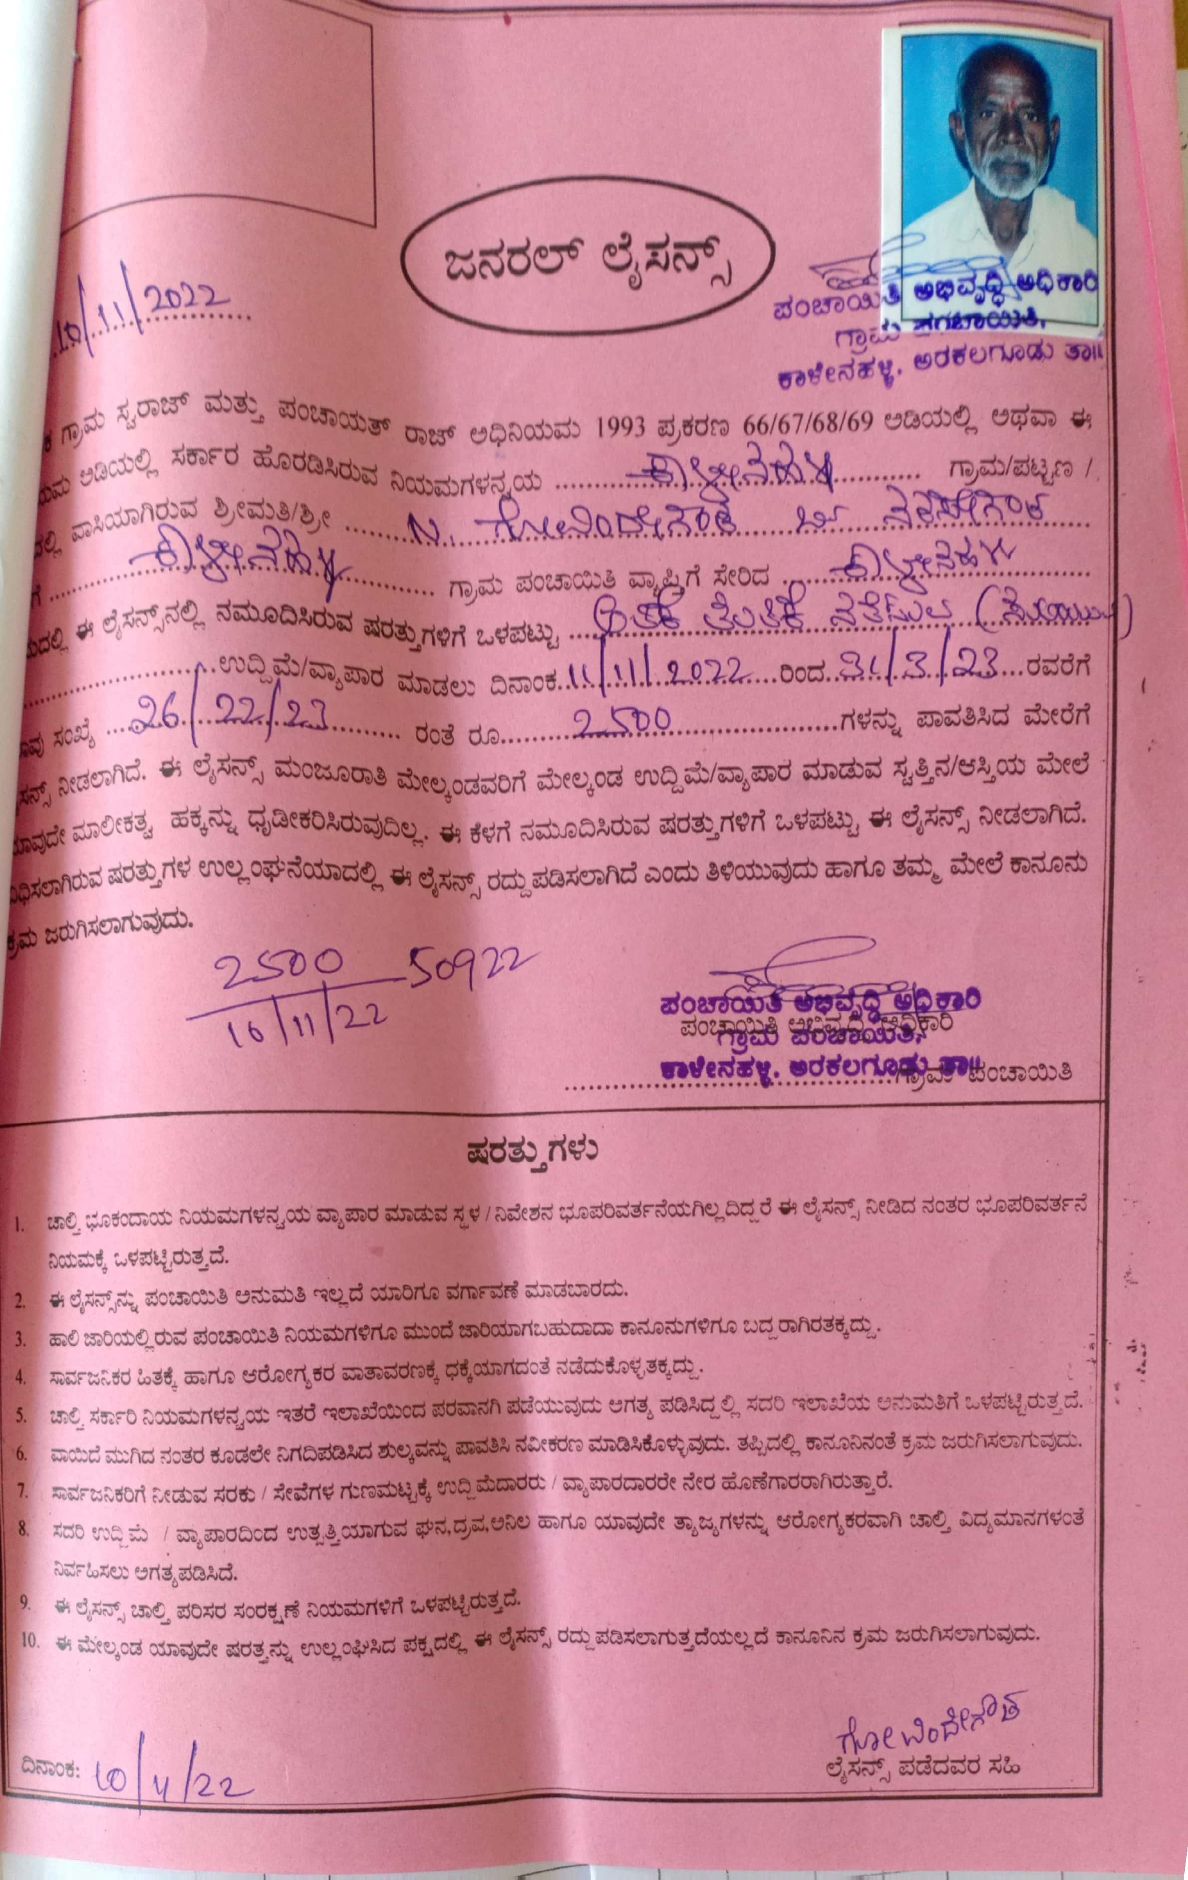 ಜನರಲ್ ಲೈಸನ್ಸ್
10/11/2022
ಪಂಚಾಯಿತಿ ಅಭಿವೃದ್ಧಿ ಅಧಿಕಾರಿ
ಗ್ರಾಮ ಪಂಚಾಯಿತಿ,
ಕಾಳೇನಹಳ್ಳಿ, ಅರಕಲಗೂಡು ತಾ||
ಗ್ರಾಮ ಸ್ವರಾಜ್ ಮತ್ತು ಪಂಚಾಯತ್ ರಾಜ್ ಅಧಿನಿಯಮ 1993 ಪ್ರಕರಣ 66/67/68/69 ಅಡಿಯಲ್ಲಿ ಅಥವಾ ಈ
ಅಡಿಯಲ್ಲಿ ಸರ್ಕಾರ ಹೊರಡಿಸಿರುವ ನಿಯಮಗಳನ್ವಯ ಕಾಳೇನಹಳ್ಳಿ ಗ್ರಾಮ/ಪಟ್ಟಣ /
ವಾಸಿಯಾಗಿರುವ ಶ್ರೀಮತಿ/ಶ್ರೀ N. ಗೋವಿಂದೇಗೌಡ
ಕಾಳೇನಹಳ್ಳಿ ಗ್ರಾಮ ಪಂಚಾಯಿತಿ ವ್ಯಾಪ್ತಿಗೆ ಸೇರಿದ ಕಾಳೇನಹಳ್ಳಿ
ಈ ಲೈಸನ್ಸ್‌ನಲ್ಲಿ ನಮೂದಿಸಿರುವ ಷರತ್ತುಗಳಿಗೆ ಒಳಪಟ್ಟು
ಉದ್ದಿಮೆ/ವ್ಯಾಪಾರ ಮಾಡಲು ದಿನಾಂಕ 11/11/2022 ರಿಂದ 31/3/23 ರವರೆಗೆ
ಸಂಖ್ಯೆ 26/22/23 ರಂತೆ ರೂ 2500 ಗಳನ್ನು ಪಾವತಿಸಿದ ಮೇರೆಗೆ
ನೀಡಲಾಗಿದೆ. ಈ ಲೈಸನ್ಸ್ ಮಂಜೂರಾತಿ ಮೇಲ್ಕಂಡವರಿಗೆ ಮೇಲ್ಕಂಡ ಉದ್ದಿಮೆ/ವ್ಯಾಪಾರ ಮಾಡುವ ಸ್ವತ್ತಿನ/ಆಸ್ತಿಯ ಮೇಲೆ
ಮಾಲೀಕತ್ವ ಹಕ್ಕನ್ನು ಧೃಡೀಕರಿಸಿರುವುದಿಲ್ಲ. ಈ ಕೆಳಗೆ ನಮೂದಿಸಿರುವ ಷರತ್ತುಗಳಿಗೆ ಒಳಪಟ್ಟು ಈ ಲೈಸನ್ಸ್ ನೀಡಲಾಗಿದೆ.
ಷರತ್ತುಗಳ ಉಲ್ಲಂಘನೆಯಾದಲ್ಲಿ ಈ ಲೈಸನ್ಸ್ ರದ್ದುಪಡಿಸಲಾಗಿದೆ ಎಂದು ತಿಳಿಯುವುದು ಹಾಗೂ ತಮ್ಮ ಮೇಲೆ ಕಾನೂನು
ಜರುಗಿಸಲಾಗುವುದು.
2500 50922
10/11/22
ಪಂಚಾಯಿತಿ ಅಭಿವೃದ್ಧಿ ಅಧಿಕಾರಿ
ಪಂಚಾಯಿತಿ ಅಭಿವೃದ್ಧಿ ಅಧಿಕಾರಿ
ಗ್ರಾಮ ಪಂಚಾಯಿತಿ,
ಕಾಳೇನಹಳ್ಳಿ, ಅರಕಲಗೂಡು ತಾ||
ಗ್ರಾಮ ಪಂಚಾಯಿತಿ
ಷರತ್ತುಗಳು
1. ಚಾಲ್ತಿ ಭೂಕಂದಾಯ ನಿಯಮಗಳನ್ವಯ ವ್ಯಾಪಾರ ಮಾಡುವ ಸ್ಥಳ / ನಿವೇಶನ ಭೂಪರಿವರ್ತನೆಯಗಿಲ್ಲದಿದ್ದರೆ ಈ ಲೈಸನ್ಸ್ ನೀಡಿದ ನಂತರ ಭೂಪರಿವರ್ತನೆ
ನಿಯಮಕ್ಕೆ ಒಳಪಟ್ಟಿರುತ್ತದೆ.
2. ಈ ಲೈಸನ್ಸ್‌ನ್ನು ಪಂಚಾಯಿತಿ ಅನುಮತಿ ಇಲ್ಲದೆ ಯಾರಿಗೂ ವರ್ಗಾವಣೆ ಮಾಡಬಾರದು.
3. ಹಾಲಿ ಜಾರಿಯಲ್ಲಿರುವ ಪಂಚಾಯಿತಿ ನಿಯಮಗಳಿಗೂ ಮುಂದೆ ಜಾರಿಯಾಗಬಹುದಾದಾ ಕಾನೂನುಗಳಿಗೂ ಬದ್ದರಾಗಿರತಕ್ಕದ್ದು.
4. ಸಾರ್ವಜನಿಕರ ಹಿತಕ್ಕೆ ಹಾಗೂ ಆರೋಗ್ಯಕರ ವಾತಾವರಣಕ್ಕೆ ಧಕ್ಕೆಯಾಗದಂತೆ ನಡೆದುಕೊಳ್ಳತಕ್ಕದ್ದು.
5. ಚಾಲ್ತಿ ಸರ್ಕಾರಿ ನಿಯಮಗಳನ್ವಯ ಇತರೆ ಇಲಾಖೆಯಿಂದ ಪರವಾನಗಿ ಪಡೆಯುವುದು ಅಗತ್ಯ ಪಡಿಸಿದ್ದಲ್ಲಿ ಸದರಿ ಇಲಾಖೆಯ ಅನುಮತಿಗೆ ಒಳಪಟ್ಟಿರುತ್ತದೆ.
6. ವಾಯಿದೆ ಮುಗಿದ ನಂತರ ಕೂಡಲೇ ನಿಗದಿಪಡಿಸಿದ ಶುಲ್ಕವನ್ನು ಪಾವತಿಸಿ ನವೀಕರಣ ಮಾಡಿಸಿಕೊಳ್ಳುವುದು. ತಪ್ಪಿದಲ್ಲಿ ಕಾನೂನಿನಂತೆ ಕ್ರಮ ಜರುಗಿಸಲಾಗುವುದು.
7. ಸಾರ್ವಜನಿಕರಿಗೆ ನೀಡುವ ಸರಕು / ಸೇವೆಗಳ ಗುಣಮಟ್ಟಕ್ಕೆ ಉದ್ದಿಮೆದಾರರು / ವ್ಯಾಪಾರದಾರರೇ ನೇರ ಹೊಣೆಗಾರರಾಗಿರುತ್ತಾರೆ.
8. ಸದರಿ ಉದ್ದಿಮೆ / ವ್ಯಾಪಾರದಿಂದ ಉತ್ಪತ್ತಿಯಾಗುವ ಘನ,ದ್ರವ,ಅನಿಲ ಹಾಗೂ ಯಾವುದೇ ತ್ಯಾಜ್ಯಗಳನ್ನು ಆರೋಗ್ಯಕರವಾಗಿ ಚಾಲ್ತಿ ವಿದ್ಯಮಾನಗಳಂತೆ
ನಿರ್ವಹಿಸಲು ಅಗತ್ಯಪಡಿಸಿದೆ.
9. ಈ ಲೈಸನ್ಸ್ ಚಾಲ್ತಿ ಪರಿಸರ ಸಂರಕ್ಷಣೆ ನಿಯಮಗಳಿಗೆ ಒಳಪಟ್ಟಿರುತ್ತದೆ.
10. ಈ ಮೇಲ್ಕಂಡ ಯಾವುದೇ ಷರತ್ತನ್ನು ಉಲ್ಲಂಘಿಸಿದ ಪಕ್ಷದಲ್ಲಿ ಈ ಲೈಸನ್ಸ್ ರದ್ದುಪಡಿಸಲಾಗುತ್ತದೆಯಲ್ಲದೆ ಕಾನೂನಿನ ಕ್ರಮ ಜರುಗಿಸಲಾಗುವುದು.
ಗೋವಿಂದೇಗೌಡ
ದಿನಾಂಕ: 10/11/22 ಲೈಸನ್ಸ್ ಪಡೆದವರ ಸಹಿ